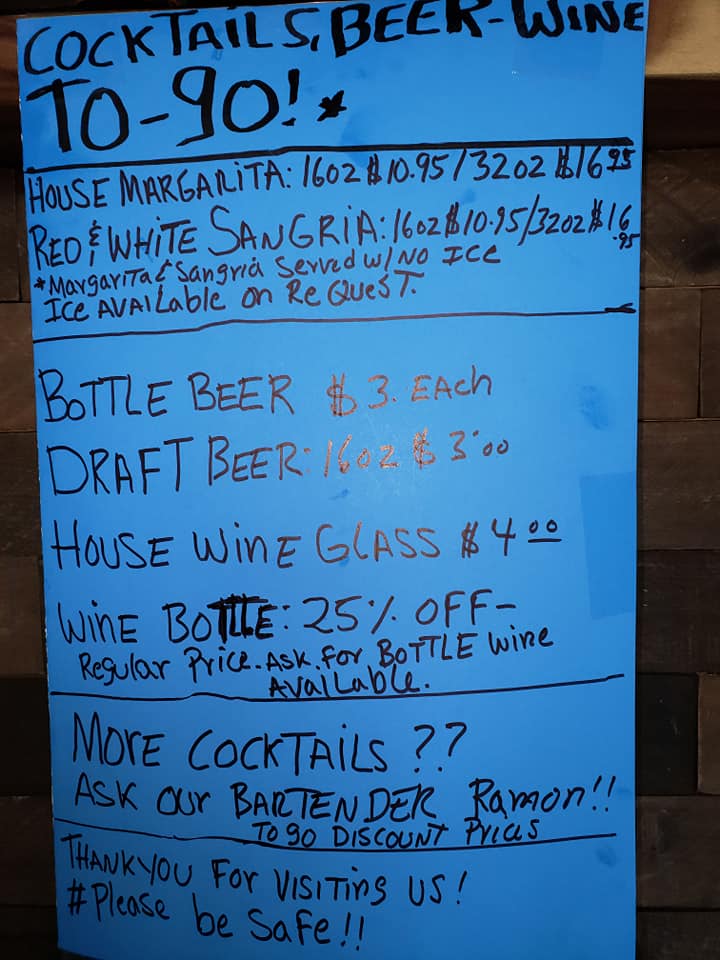 COCKTAILS, BEER-WINE
TO-GO!*
HOUSE MARGARITA: 16oz $10.95/32oz $16.95
RED & WHITE SANGRIA: 16oz $10.95/32oz $16.95
*Margarita & Sangria Served w/ NO ICE
ICE AVAILable on ReQuesT.
BOTTLE BEER $3. EACH
DRAFT BEER: 16oz $3.00
HOUSE WINE GLASS $4.00
WINE BOTTLE: 25% OFF-
Regular Price. Ask. For BOTTLE wine
AvaiLable.
MORE COCKTAILS ??
ASK OUr BARTENDER Ramon!!
TO GO DISCOUNT PriceS
THANKYOU For VISITING US!
#Please be Safe!!